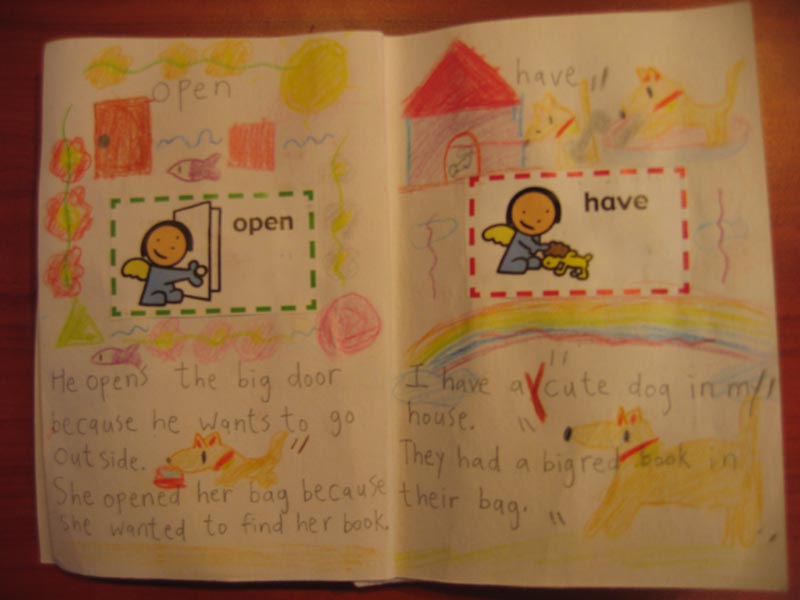 open
open
He opens the big door
because he wants to go
outside.
She opened her bag because
she wanted to find her book.
have
have
I have a cute dog in my
house.
They had a big red book in
their bag.